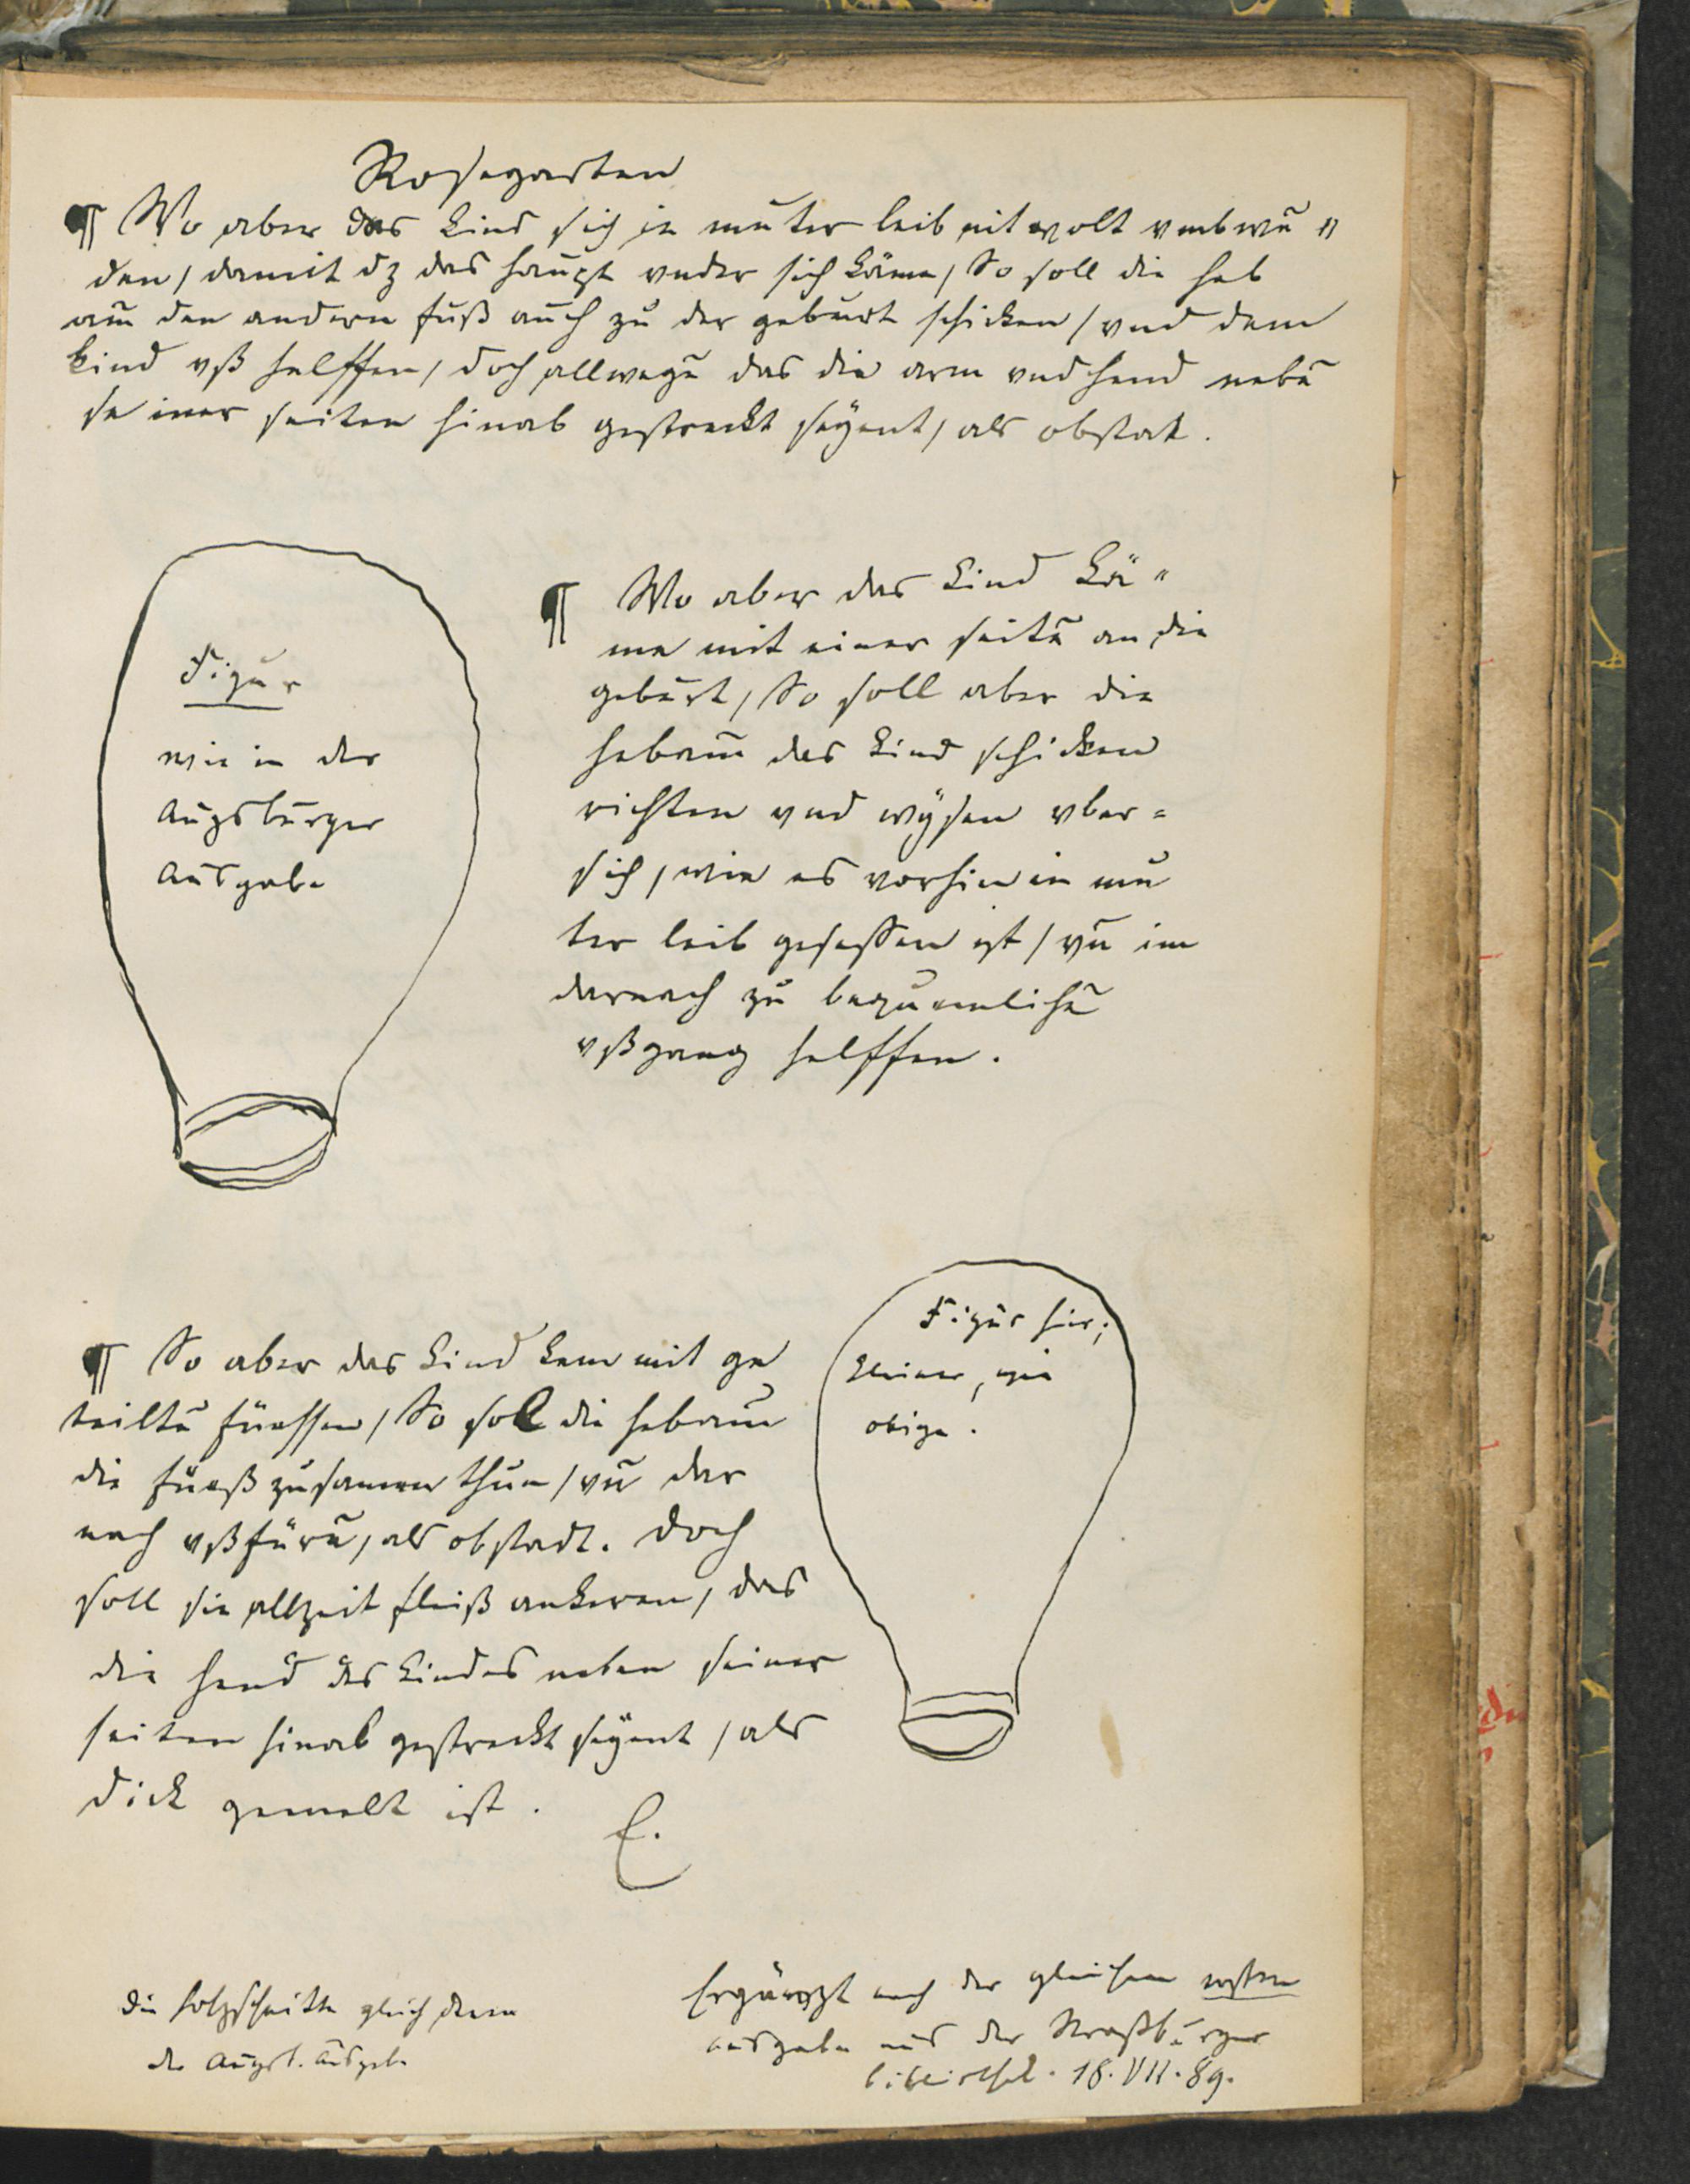 Rosegarten
¶ Wo aber das kind sich in muter leib nit wolt vmbwē„
den / damit dz das haupt vnder sich käme / So soll die heb
am̄ den andern fuß auch zu der geburt schicken / vnd dem
kind vß helffen / doch allwegē das die arm vnd hend nebē
seiner seiten hinab gestreckt seyent / als obstat.
¶ Wo aber das kind kä„
me mit einer seitē an die
geburt / So soll aber die
hebam̄ das kind schicken
richten vnd wysen vber=
sich / wie es vorhin in mu
ter leib gesessen ist / vn̄ im
darnach zu bequemlichē
vßgang helffen.
Figur
wie in der
Augsburger
Ausgabe
¶ So aber das kind kem mit ge
teiltē füessen / So sol die hebam̄
die füeß zusamen thun / vn̄ dar
nach vßfürē / als obstadt. Doch
soll sie allzeit fleiß ankeren / das
die hend des kindes neben seiner
seiten hinab gestreckt seyent / als
dick gemelt ist.
E.
Figur hier;
kleiner, wie
obige.
Die Holzschnitte gleich denen
der Augsb. Ausgabe
Ergänzt nach der gleichen ersten
Ausgabe aus der Straßburger
Bibliothek. 18. VII. 89.